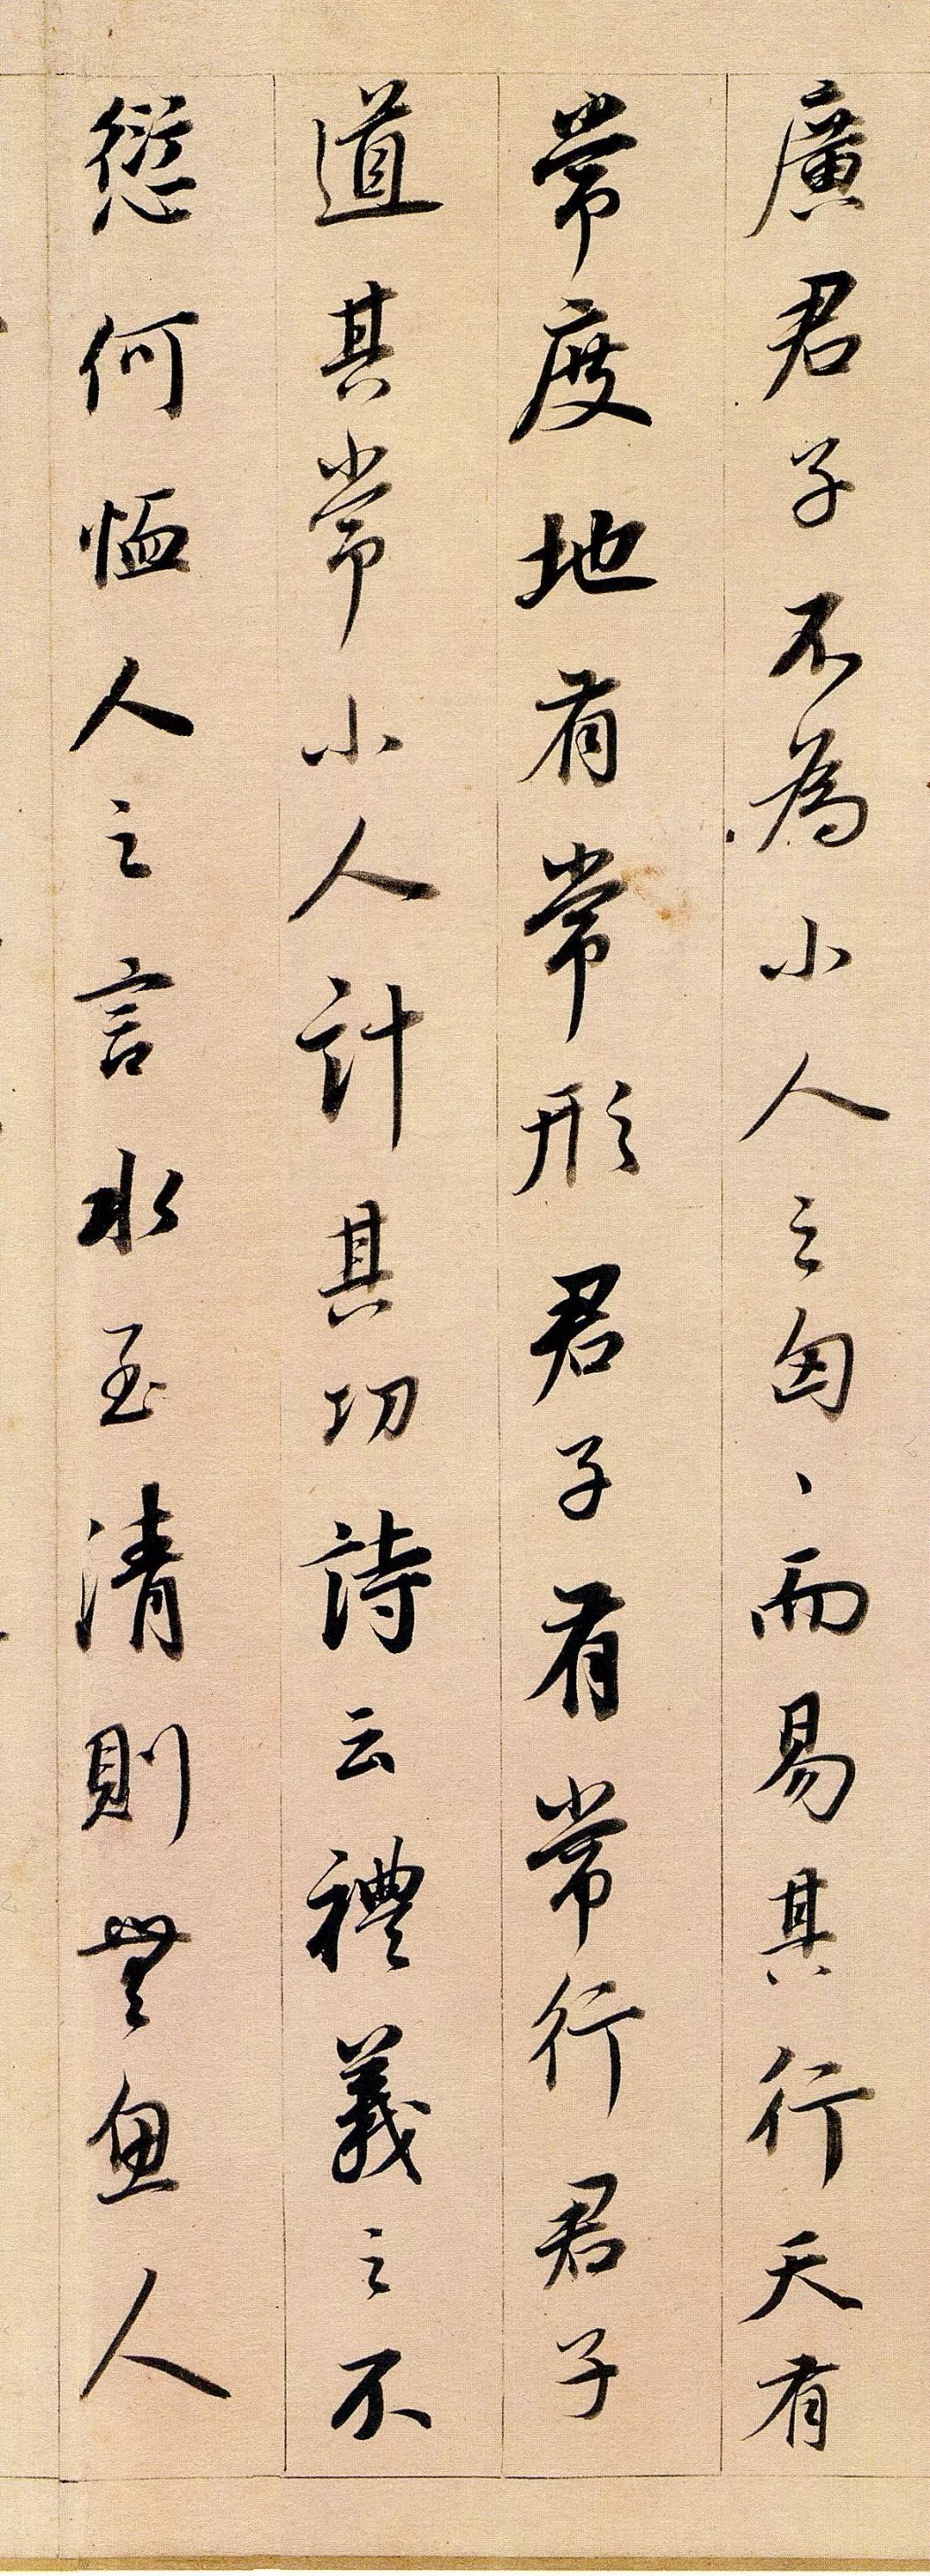 廣君子不為小人之匈、而易其行天有
常度地有常形君子有常行君子
道其常小人計其功詩云禮義之不
愆何恤人之言水至清則無魚人